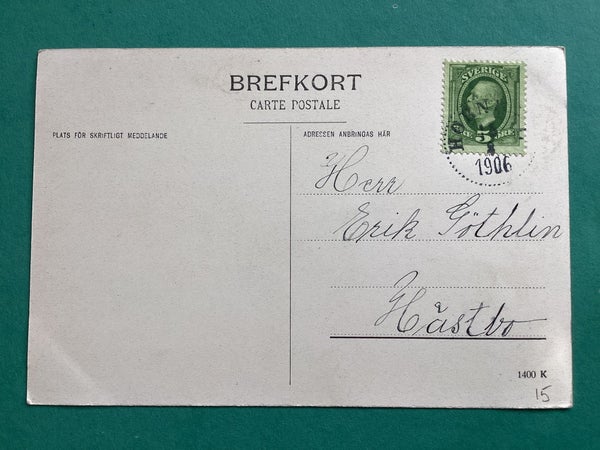 BREFKORT
CARTE POSTALE
PLATS FÖR SKRIFTLIGT MEDDELANDE
ADRESSEN ANBRINGAS HÄR
SVERIGE
5
ÖRE
1906
Herr
Erik Göthlin
Håstbo
1400 K
15